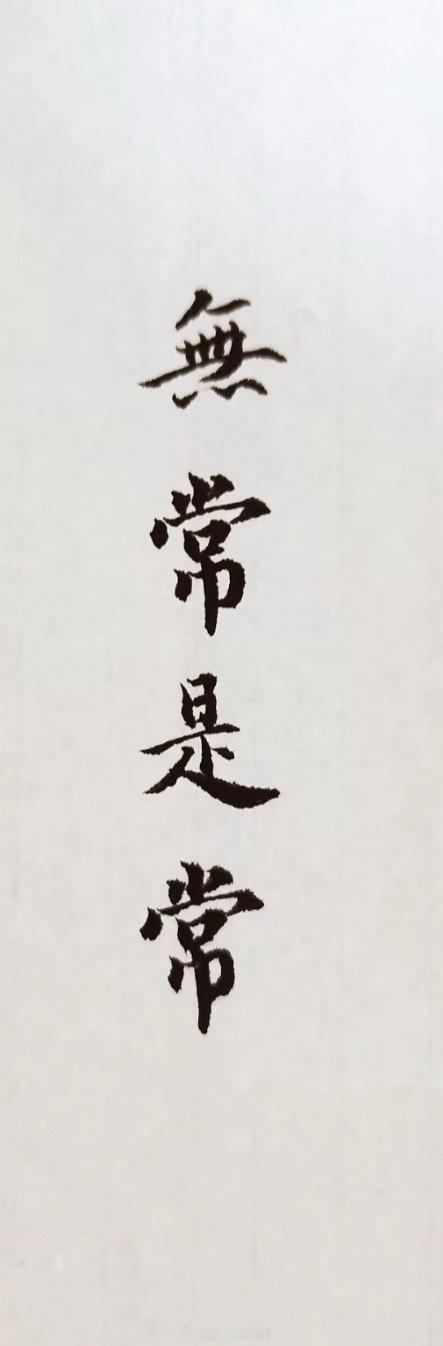 無常是常